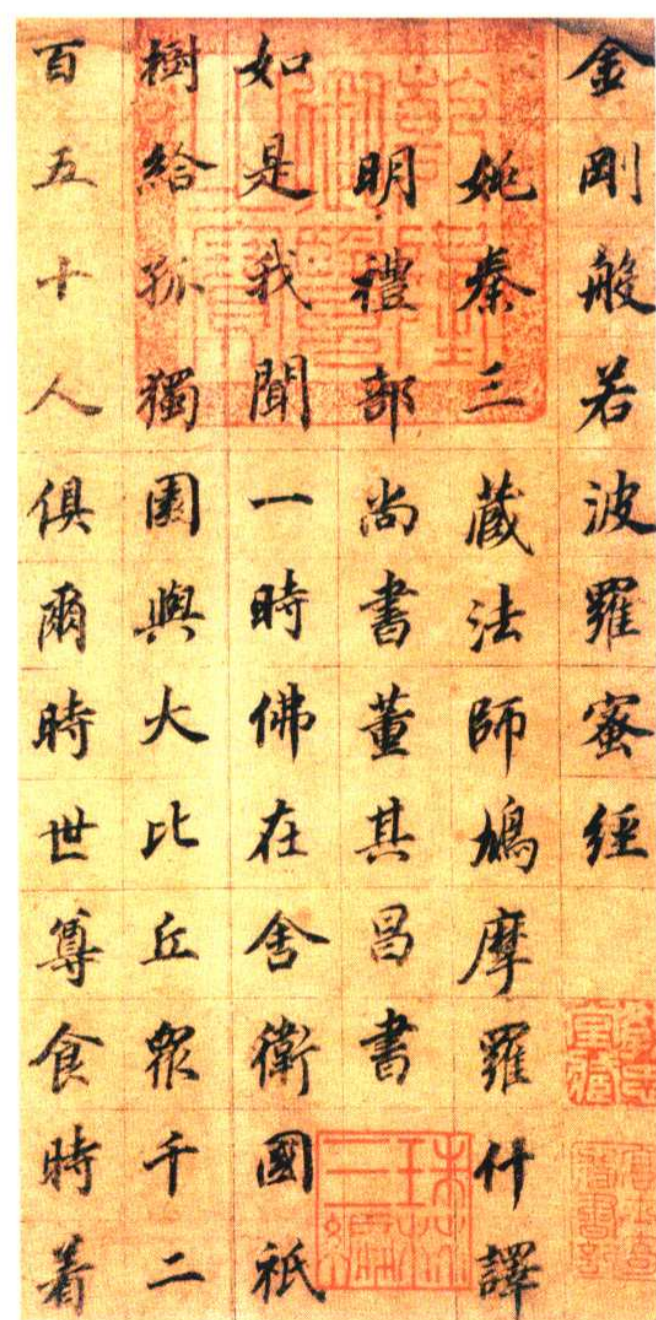 金剛般若波羅蜜經
姚秦三藏法師鳩摩羅什譯
明禮部尚書董其昌書
如是我聞一時佛在舍衛國祇
樹給孤獨園與大比丘眾千二
百五十人俱爾時世尊食時着